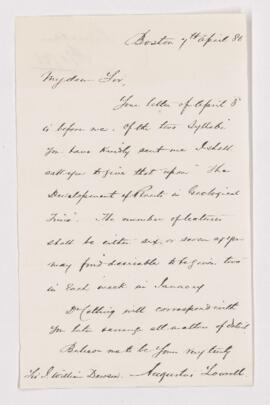 Boston 7th April 86
My dear Sir,
Your letter of April 5
is before me. Of the two Syllabi
you have kindly sent me I shall
ask you to give that upon "The
Development of Plants in Geological
Time". The number of lectures
shall be either six, or seven as you
may find desirable to be given two
in each week in January
Dr Cotting will correspond with
you later arrange all matters of detail
Believe me to be Yours very truly
Augustus Lowell
J. William Dawson.